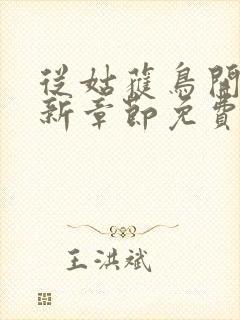 從姑蒦鳥開
新章節免費
王洪斌